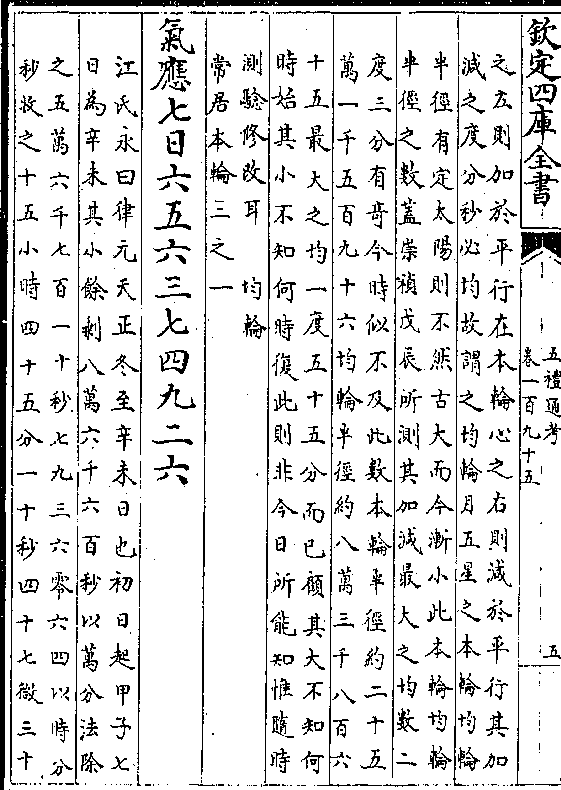 欽定四庫全書
五禮通考
卷一百九十五
五
之左則加於平行在本輪心之右則減於平行其加
減之度分秒必均故謂之均輪月五星之本輪均輪
半徑有定太陽則不然古大而今漸小此本輪均輪
半徑之數蓋崇禎戊辰所測其加減最大之均數二
度三分有奇今時似不及此數本輪半徑約二十五
萬一千五百九十六均輪半徑約八萬三千八百六
十五最大之均一度五十五分而已顧其大不知何
時始其小不知何時復此則非今日所能知惟隨時
測驗修改耳 均輪
常居本輪三之一
氣應七日六五六三七四九二六
江氏永曰律元天正冬至辛未日也初日起甲子七
日為辛未其小餘剩八萬六千六百秒以萬分法除
之五萬六千七百一十秒七九三六零六四以時分
秒收之十五小時四十五分一十秒四十七微三十